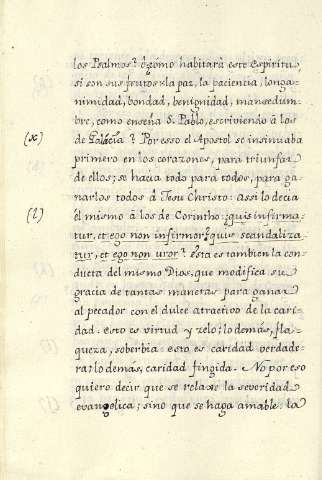 los Psalmos? ò cómo habitarà este Espiritu,
si son sus frutos: la paz, la paciencia, longa-
nimidad, bondad, benignidad, mansedum-
bre, como enseña S. Pablo, escriviendo à los
(x) de Galacia? Por eso el Apostol se insinuaba
primero en los corazones, para triunfar
de ellos; se hacia todo para todos, para ga-
narlos todos à Jesu Christo: assi lo decia
(l) el mismo à los de Corintho: quis infirma-
tur, et ego non infirmor? quis scandaliza-
tur, et ego non uror? esta es tambien la con-
ducta del mismo Dios, que modifica su
gracia de tantas maneras para ganar
al pecador con el dulce atractivo de la cari-
dad. esto es virtud y zelo; lo demàs, fla-
queza, soberbia: esto es caridad verdade-
ra: lo demàs, caridad fingida. No por eso
quiero decir que se relaxe la severidad
evangelica; sino que se haga amable: la